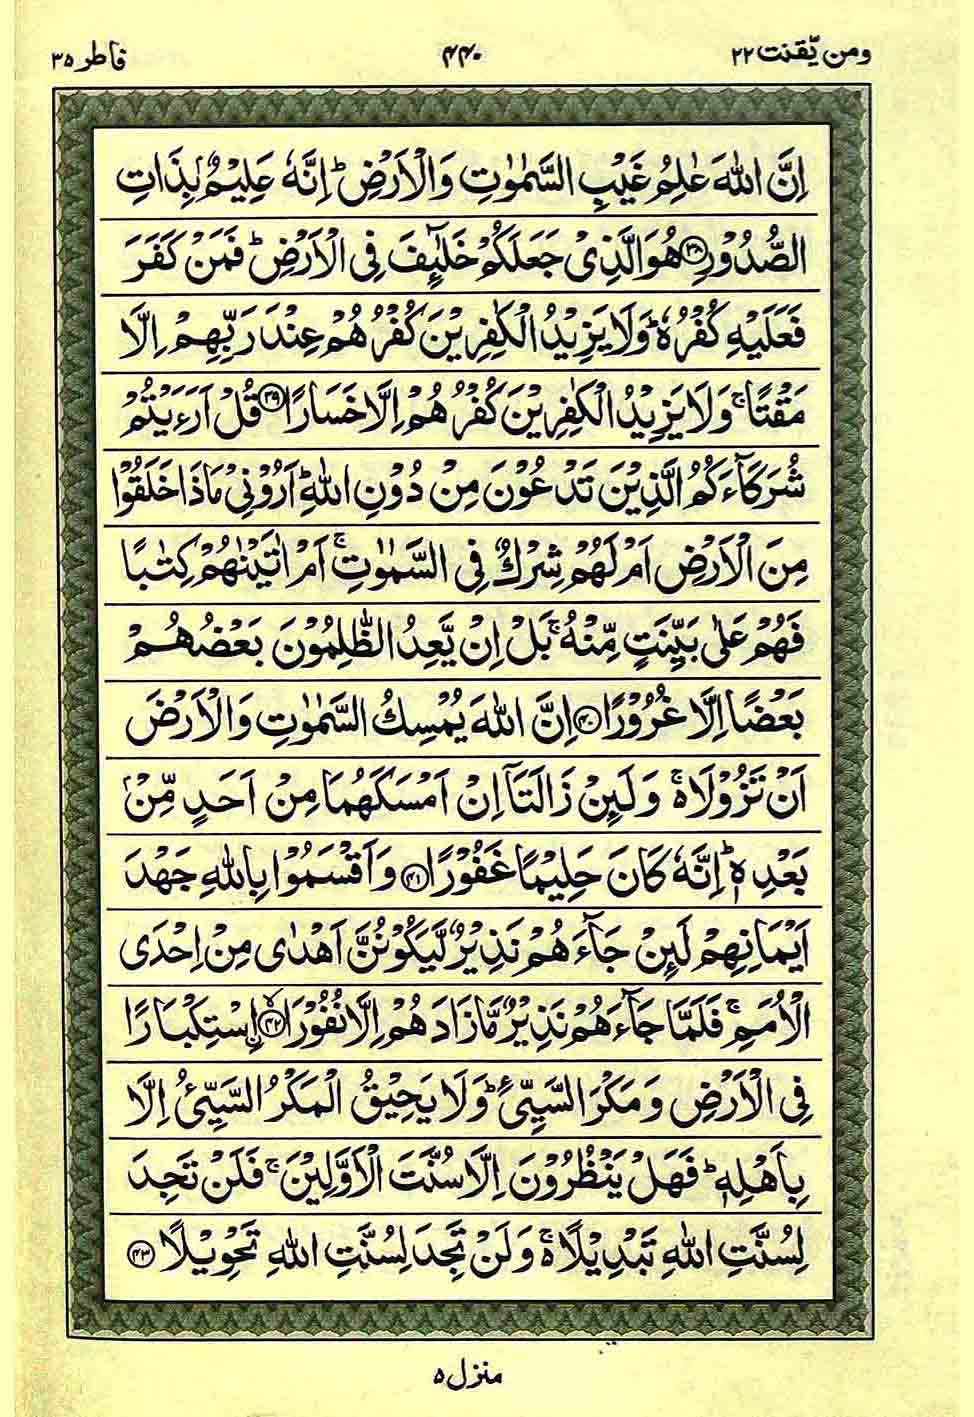 ومن يّقنت ٢٢
٤٤٠
فاطر ٣٥
اِنَّ اللّٰهَ عٰلِمُ غَيْبِ السَّمٰوٰتِ وَالْاَرْضِ ؕ اِنَّهٗ عَلِيْمٌۢ بِذَاتِ
الصُّدُوْرِ ﴿٣٨﴾ هُوَ الَّذِىْ جَعَلَكُمْ خَلٰٓئِفَ فِى الْاَرْضِ ؕ فَمَنْ كَفَرَ
فَعَلَيْهِ كُفْرُهٗ ؕ وَلَا يَزِيْدُ الْكٰفِرِيْنَ كُفْرُهُمْ عِنْدَ رَبِّهِمْ اِلَّا
مَقْتًا ۚ وَلَا يَزِيْدُ الْكٰفِرِيْنَ كُفْرُهُمْ اِلَّا خَسَارًا ﴿٣٩﴾ قُلْ اَرَءَيْتُمْ
شُرَكَآءَكُمُ الَّذِيْنَ تَدْعُوْنَ مِنْ دُوْنِ اللّٰهِ ؕ اَرُوْنِىْ مَاذَا خَلَقُوْا
مِنَ الْاَرْضِ اَمْ لَهُمْ شِرْكٌ فِى السَّمٰوٰتِ ۚ اَمْ اٰتَيْنٰهُمْ كِتٰبًا
فَهُمْ عَلٰى بَيِّنَتٍ مِّنْهُ ۚ بَلْ اِنْ يَّعِدُ الظّٰلِمُوْنَ بَعْضُهُمْ
بَعْضًا اِلَّا غُرُوْرًا ﴿٤٠﴾ اِنَّ اللّٰهَ يُمْسِكُ السَّمٰوٰتِ وَالْاَرْضَ
اَنْ تَزُوْلَا ۚ۬ وَلَئِنْ زَالَتَاۤ اِنْ اَمْسَكَهُمَا مِنْ اَحَدٍ مِّنْۢ
بَعْدِهٖ ؕ اِنَّهٗ كَانَ حَلِيْمًا غَفُوْرًا ﴿٤١﴾ وَاَقْسَمُوْا بِاللّٰهِ جَهْدَ
اَيْمَانِهِمْ لَئِنْ جَآءَهُمْ نَذِيْرٌ لَّيَكُوْنُنَّ اَهْدٰى مِنْ اِحْدَى
الْاُمَمِ ۚ فَلَمَّا جَآءَهُمْ نَذِيْرٌ مَّا زَادَهُمْ اِلَّا نُفُوْرًا ﴿٤٢﴾ اۙسْتِكْبَارًا
فِى الْاَرْضِ وَمَكْرَ السَّيِّئِ ؕ وَلَا يَحِيْقُ الْمَكْرُ السَّيِّئُ اِلَّا
بِاَهْلِهٖ ؕ فَهَلْ يَنْظُرُوْنَ اِلَّا سُنَّتَ الْاَوَّلِيْنَ ۚ فَلَنْ تَجِدَ
لِسُنَّتِ اللّٰهِ تَبْدِيْلًا ۚ۬ وَلَنْ تَجِدَ لِسُنَّتِ اللّٰهِ تَحْوِيْلًا ﴿٤٣﴾
منزل ٥